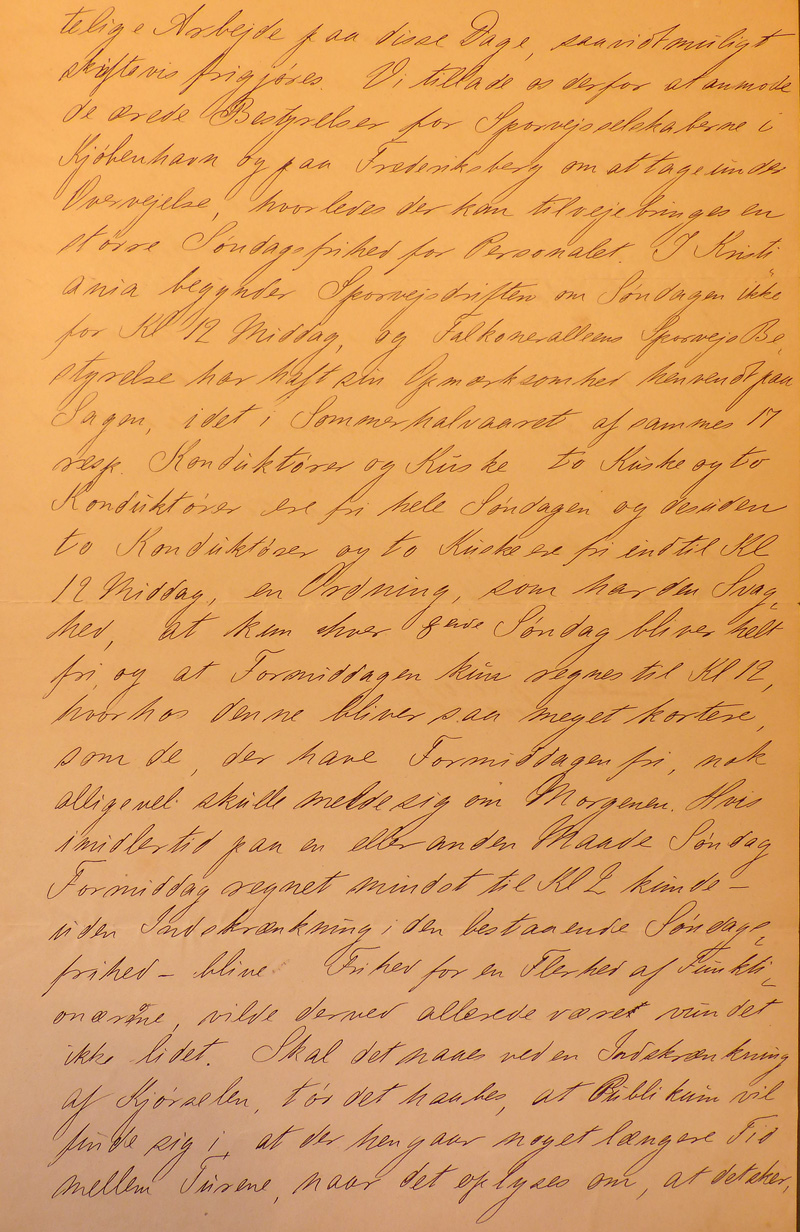 telige Arbejde paa disse Dage, saavidt muligt
skiftevis frigjøres. Vi tillade os derfor at anmode
de ærede Bestyrelser for Sporvejsselskaberne i
Kjøbenhavn og paa Frederiksberg om at tage under
Overvejelse, hvorledes der kan tilvejebringes en
større Søndagsfrihed for Personalet. I Kristi
ania begynder Sporvejsdriften om Søndagen ikke
for Kl 12 Middag, og Falkoneralleens Sporvejs Be,
styrelse har haft sin Opmærksomhed henvendt paa
Sagen, idet i Sommerhalvaaret af sammes 17
resp. Konduktører og Kuske to Kuske og to
Konduktører ere fri hele Søndagen og desuden
to Konduktører og to Kuske ere fri indtil Kl
12 Middag, en Ordning, som har den Svag,
hed, at kun hver 8ende Søndag bliver helt
fri og at Formiddagen kun regnes til Kl 12,
hvorhos denne bliver saa meget kortere,
som de, der have Formiddagen fri, nok
alligevel skulle melde sig om Morgenen. Hvis
imidlertid paa en eller anden Maade Søndag
Formiddag regnet mindst til Kl 2 kunde –
uden Indskrænkning i den bestaaende Søndags,
frihed – blive Frihed for en Flerhed af Funkti,
onærerne, vilde derved allerede være vundet
ikke lidet. Skal det naaes ved en Indskrænkning
af Kjørselen, tør det haabes, at Publikum vil
finde sig i, at der hengaar noget længere Tid
mellem Turene, naar det oplyses om, at det sker,